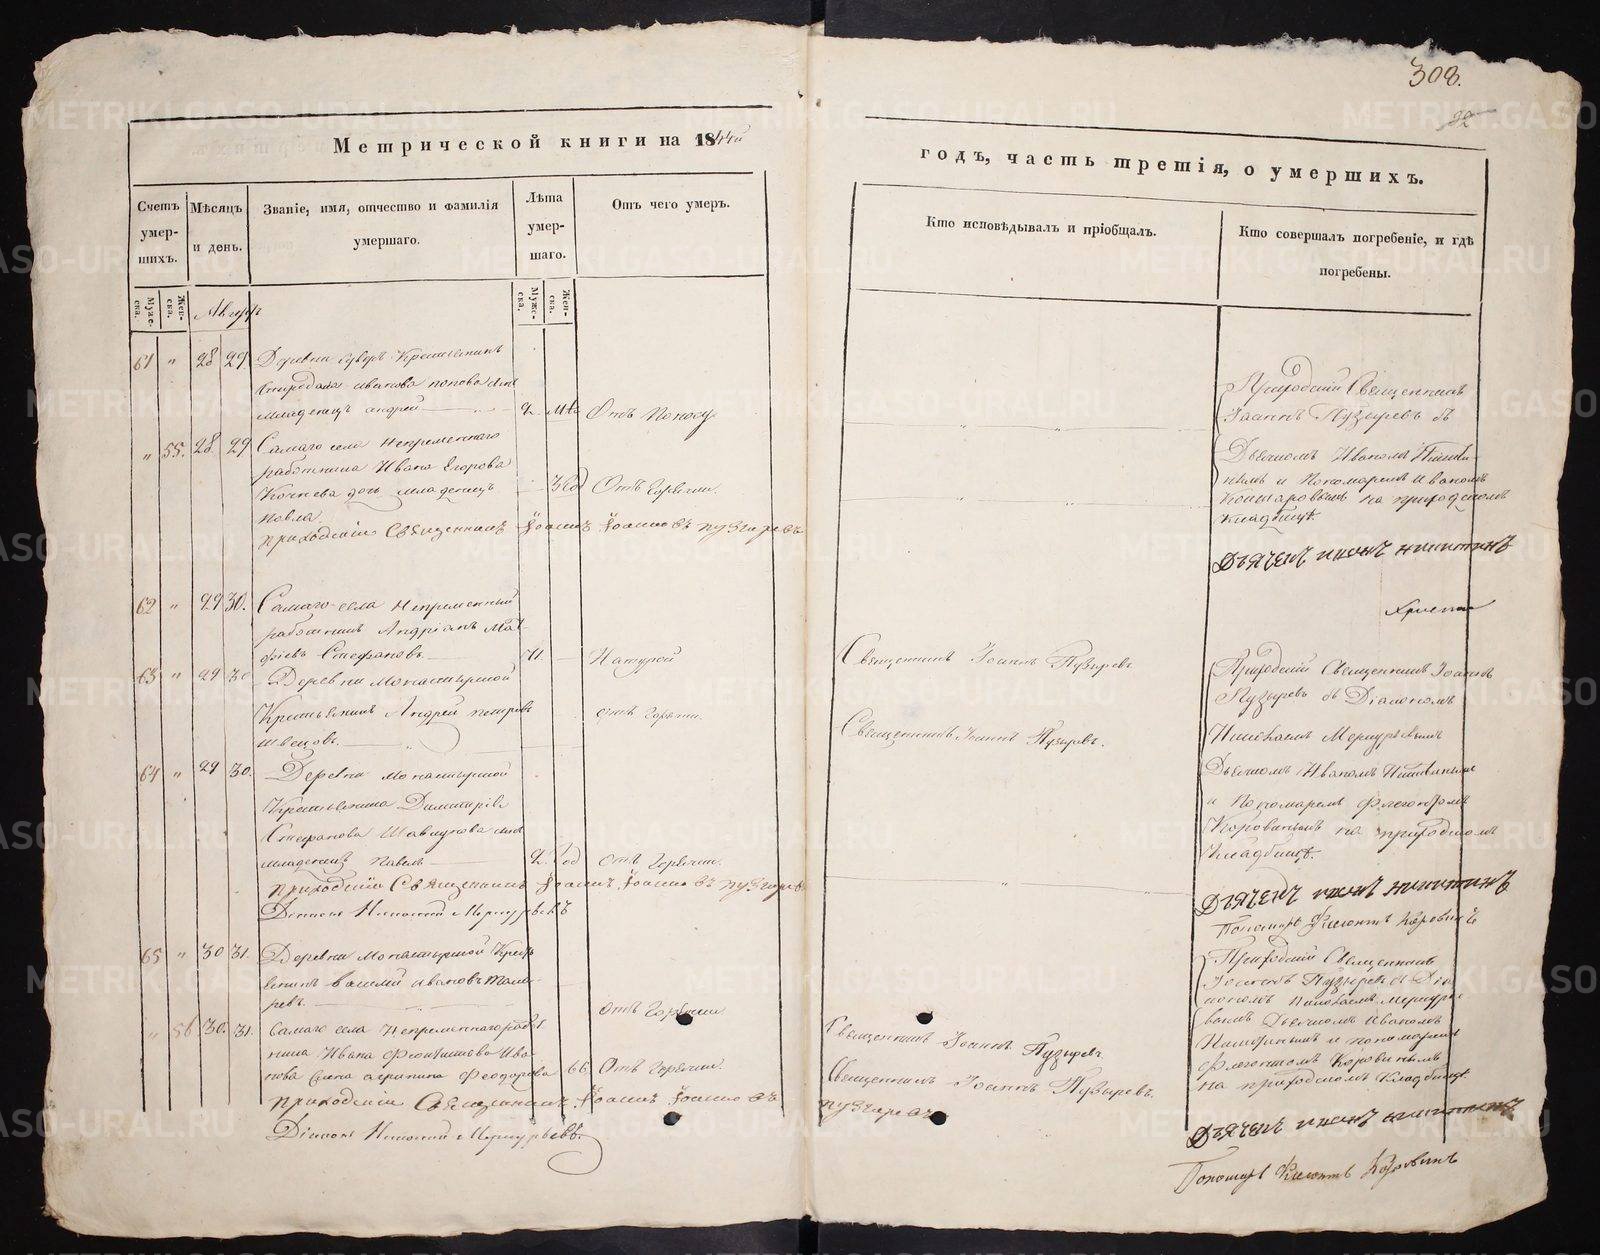 308.
32
Метрической книги на 1844й
годъ, часть третія, о умершихъ.
Счетъ умер-шихъ.
Мѣсяцъ и день.
Званіе, имя, отчество и фамилія умершаго.
Лѣта умер-шаго.
Отъ чего умеръ.
Кто исповѣдывалъ и пріобщалъ.
Кто совершалъ погребеніе, и гдѣ погребены.
Муже-ска.
Жен-ска.
Муже-ска.
Жен-ска.
Августъ
61 " 28 29 Деревни Крестьянина
Иванова Попова сынъ
младенецъ Андрей 2 Отъ Поносу
Приходскій Священникъ
Іоаннъ Пузыревъ съ
" 55. 28. 29 Самаго села Непременнаго
работника Ивана Егорова
дочь младенецъ Отъ Горячки.
Павла
Дьячкомъ Иваномъ
и Пономаремъ Иваномъ
на приходскомъ
кладбищѣ.
приходскій Священникъ Іоаннъ Іоанновъ пузыревъ
Дьячекъ Иванъ Никитинъ
62 " 29 30. Самаго села Непременный
работникъ Андріанъ
Стефановъ Натурой
Священникъ Іоаннъ Пузыревъ
63 " 29 30 Деревни Монастырской
Крестьянинъ Андрей Петровъ отъ Горячки.
Швецовъ.
Священникъ Іоаннъ Пузыревъ.
64 " 29 30. Деревни Монастырской
Крестьянина Димитрія
Стефанова Шавкунова сынъ
младенецъ Павелъ 2 отъ Горячки.
Приходскій Священникъ Іоаннъ
Пузыревъ съ Діакономъ
Николаемъ Меркурьевымъ
Дьячкомъ Иваномъ Никитинымъ
и Пономаремъ Флегонтомъ
Коровинымъ на приходскомъ
Кладбищѣ.
приходскій Священникъ Іоаннъ Іоанновъ пузыревъ
Діаконъ Николай Меркурьевъ
Дьячекъ Иванъ Никитинъ
Пономарь Флегонтъ Коровинъ
65 " 30 31. Деревни Монастырской Кресть
янинъ Василій Ивановъ
отъ Горячки
Священникъ Іоаннъ Пузыревъ
" 56 30. 31. Самаго села Непременнаго работ
ника Ивана Ива
нова жена Агрипина Феодорова 66 Отъ Горячки.
Священникъ Іоаннъ Пузыревъ.
Приходскій Священникъ
Іоаннъ Пузыревъ съ Діа
кономъ Николаемъ Меркурье
вымъ Дьячкомъ Иваномъ
Никитинымъ и пономаремъ
Флегонтомъ Коровинымъ
на приходскомъ Кладбищѣ.
приходскій Священникъ Іоаннъ Іоанновъ
пузыревъ
Діаконъ Николай Меркурьевъ.
Дьячекъ Иванъ Никитинъ
Пономарь Флегонтъ Коровинъ
METRIKI.GASO-URAL.RU